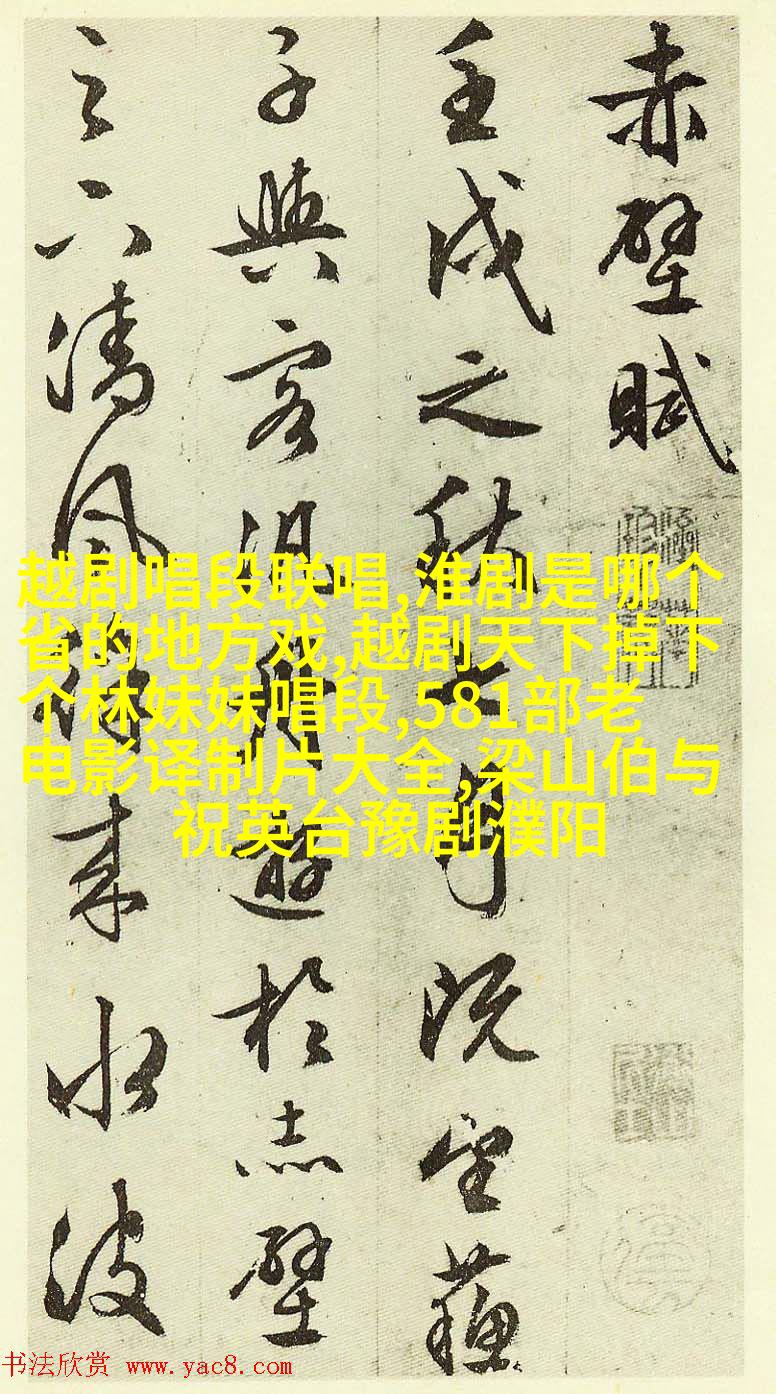 赤壁賦
壬戌之秋七月既望蘓
子與客汎舟遊於赤壁
之下清風徐来水波
越剧唱段联唱,淮剧是哪个
省的地方戏,越剧天下掉下
个林妹妹唱段,581部老
电影译制片大全,梁山伯与
祝英台豫剧濮阳
书法欣赏 www.yac8.com